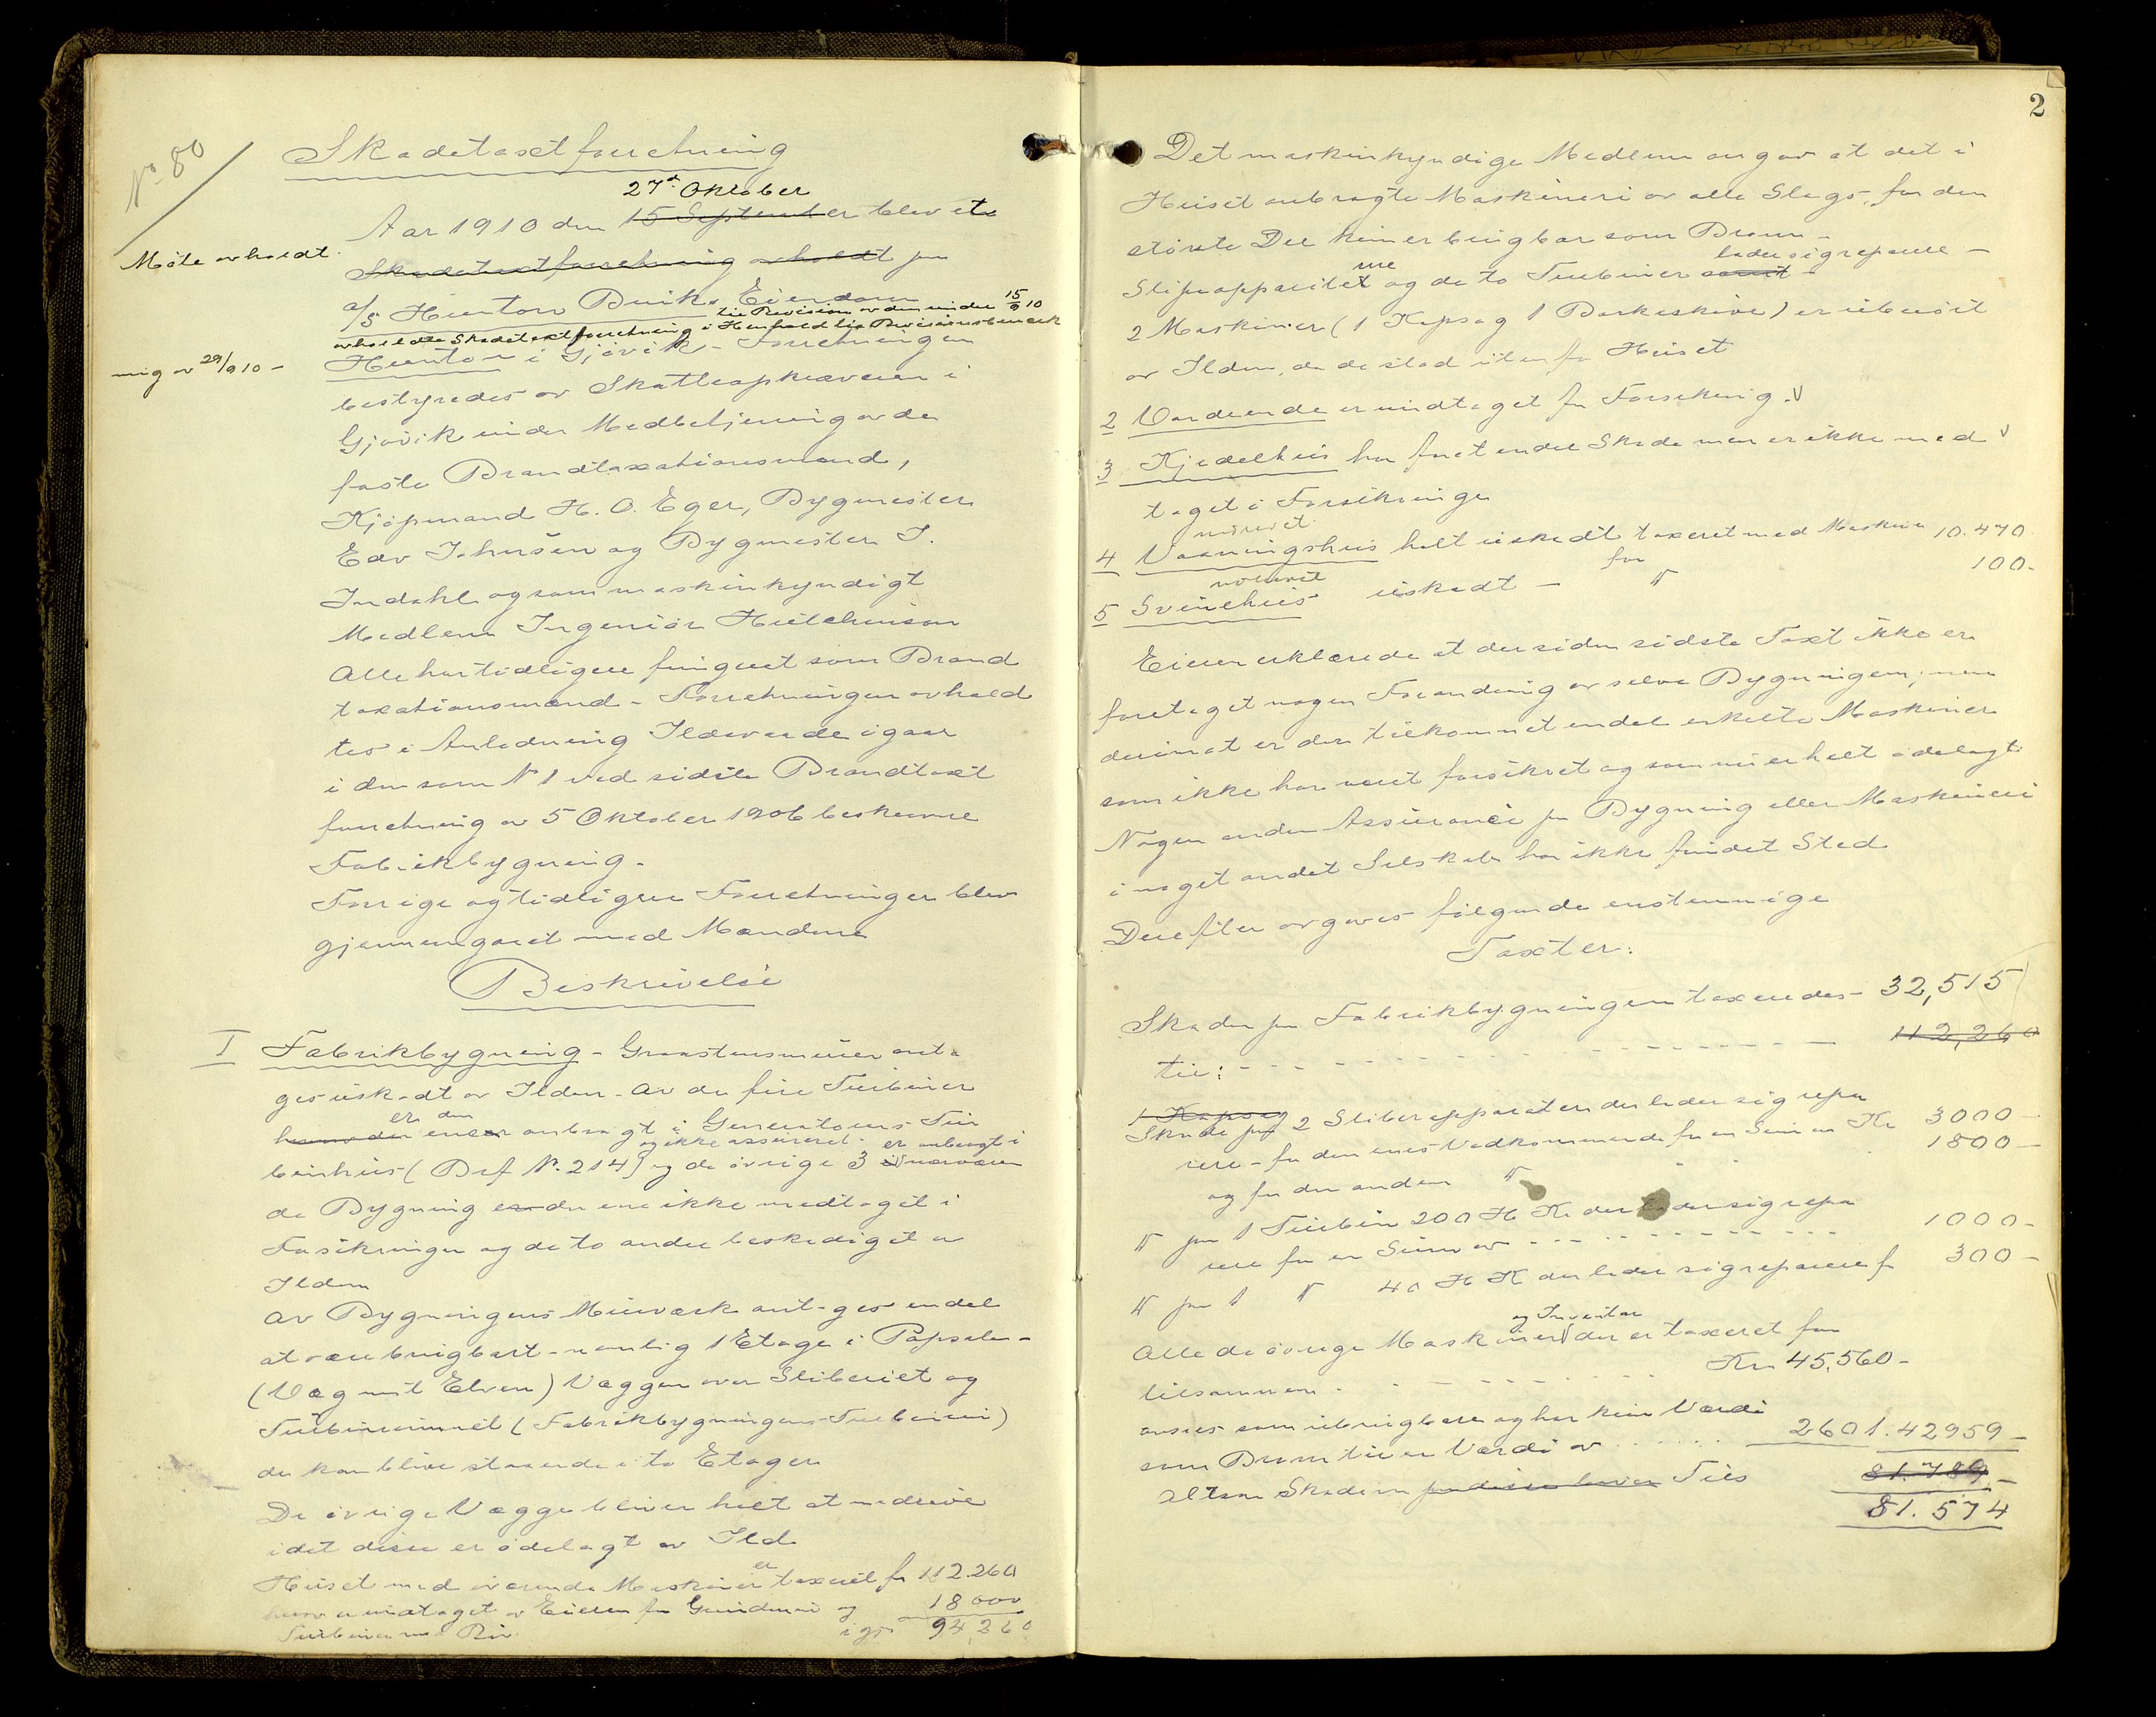 No 80
Skadetaxtforretning
27de Oktober
Aar 1910 den 15 September blev et
Møte avholdt
Skadetaxtforretning avholdt paa
a/s Hunton Bruks Eiendom
til Revision av den under 15/9 10
avholdte Skadetaxtforretning i Henhold til Revisionsbemerk
ning av 29/9 10 -
Hunton i Gjøvik - Forretningen
bestyredes av Skatteopkræveren i
Gjøvik under Medbetjening av de
faste Brandtaxationsmænd,
Kjøpmand H. O. Eger, Bygmester
Edv Johnsen og Bygmester J.
Indahl og som maskinkyndigt
Medlem Ingeniør Hutchinson
Alle har tidligere fungeret som Brand
taxationsmænd - Forretningen avhold
tes i Anledning Ildsvaade igaar
i den som No 1 ved sidste Brandtaxt
forretning av 5 Oktober 1906 beskrevne
Fabrikbygning -
Forrige og tidligere Forretninger blev
gjennemgaaet med Mændene
Beskrivelse
I Fabrikbygning - Graastensmurer anta
ges uskadt av Ilden - Av de fire Turbiner
er den
herav der ene er anbragt i Generatorens Tur
og ikke assureret - er anbragt i
binhus (Brf No. 214) og de øvrige 3 i nærværen
de Bygning er den ene ikke medtaget i
Forsikringen og de to andre beskadiget av
Ilden
Av Bygningens Murværk antages endel
at være brugbart - nemlig 1 Etage i Papsalen -
(Væg mot Elven) Væggen over Sliberiet og
Turbinrummet (Fabrikbygningens Turbiner)
der kan blive staaende i to Etager
De øvrige Vægge bliver helt at nedrive
idet disse er ødelagt av Ild
er
Huset med iværende Maskiner taxeret for 112.260
herav undtaget av Eieren for Grundmur og 18000
Turbiner med Rør igj. 94,260
2
Det maskinkyndige Medlem angav at det i
Huset anbragte Maskineri av alle Slags, for den
største Del kun er brugbar som Brom -
ne lader sig reparere -
Slipeapparatet og de to Turbiner samt -
2 Maskiner (1 Kapsag 1 Barkeskive) er uberørt
av Ilden, da de stod utenfor Huset
2 Vandrende er undtaget fra Forsikring. V
3 Kjedelhus har faaet endel Skade men er ikke med V
taget i Forsikringen
uvurderet
4 Vaaningshus helt uskadt taxeret med Maskiner 10.470
for
5 Svinehus uskadt - " 100 -
Eieren erklærede at der siden sidste Taxt ikke er
foretaget nogen Forandring av selve Bygningen; men
derimot er der tilkommet endel enkelte Maskiner
som ikke har været forsikret og som nu er helt ødelagt
Nogen anden Assurance paa Bygning eller Maskineri
i noget andet Selskab har ikke fundet Sted
Derefter avgaves følgende enstemmige
Taxter:
Skaden paa Fabrikbygningen taxeredes - 32,515
til: - - - - - - 112,260
1 Kapsag
Skade paa 2 Sliberapparater der lader sig repa
rere - for den enes Vedkommende for en Sum av Kr 3000 -
og for den anden " 1800 -
" paa 1 Turbin 200 H K der lader sig repa
rere for en Sum av - - - - - - 1000 -
" paa 1 " 40 H K der lader sig reparere f 300 -
og Inventar
Alle de øvrige Maskiner V der er taxeret for
tilsammen - - - - - Kr 45.560 -
ansees som ubrugbare og har kun Værdi
som Brom til en Værdi av . . . . . . 2601. 42959 -
Altsaa Skadens paa disse laves Tils 81.789 -
81.574